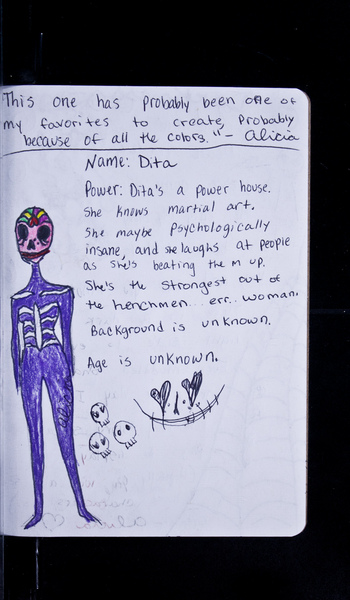 This one has probably been one of
my favorites to create, Probably
because of all the colors." - Alicia
Name: Dita
Power: Dita's a power house.
She knows martial art.
She maybe Psychologically
insane, and she laughs at people
as she's beating the m up.
She's the strongest out of
the henchmen... err.. woman.
Background is unknown.
Age is unknown.